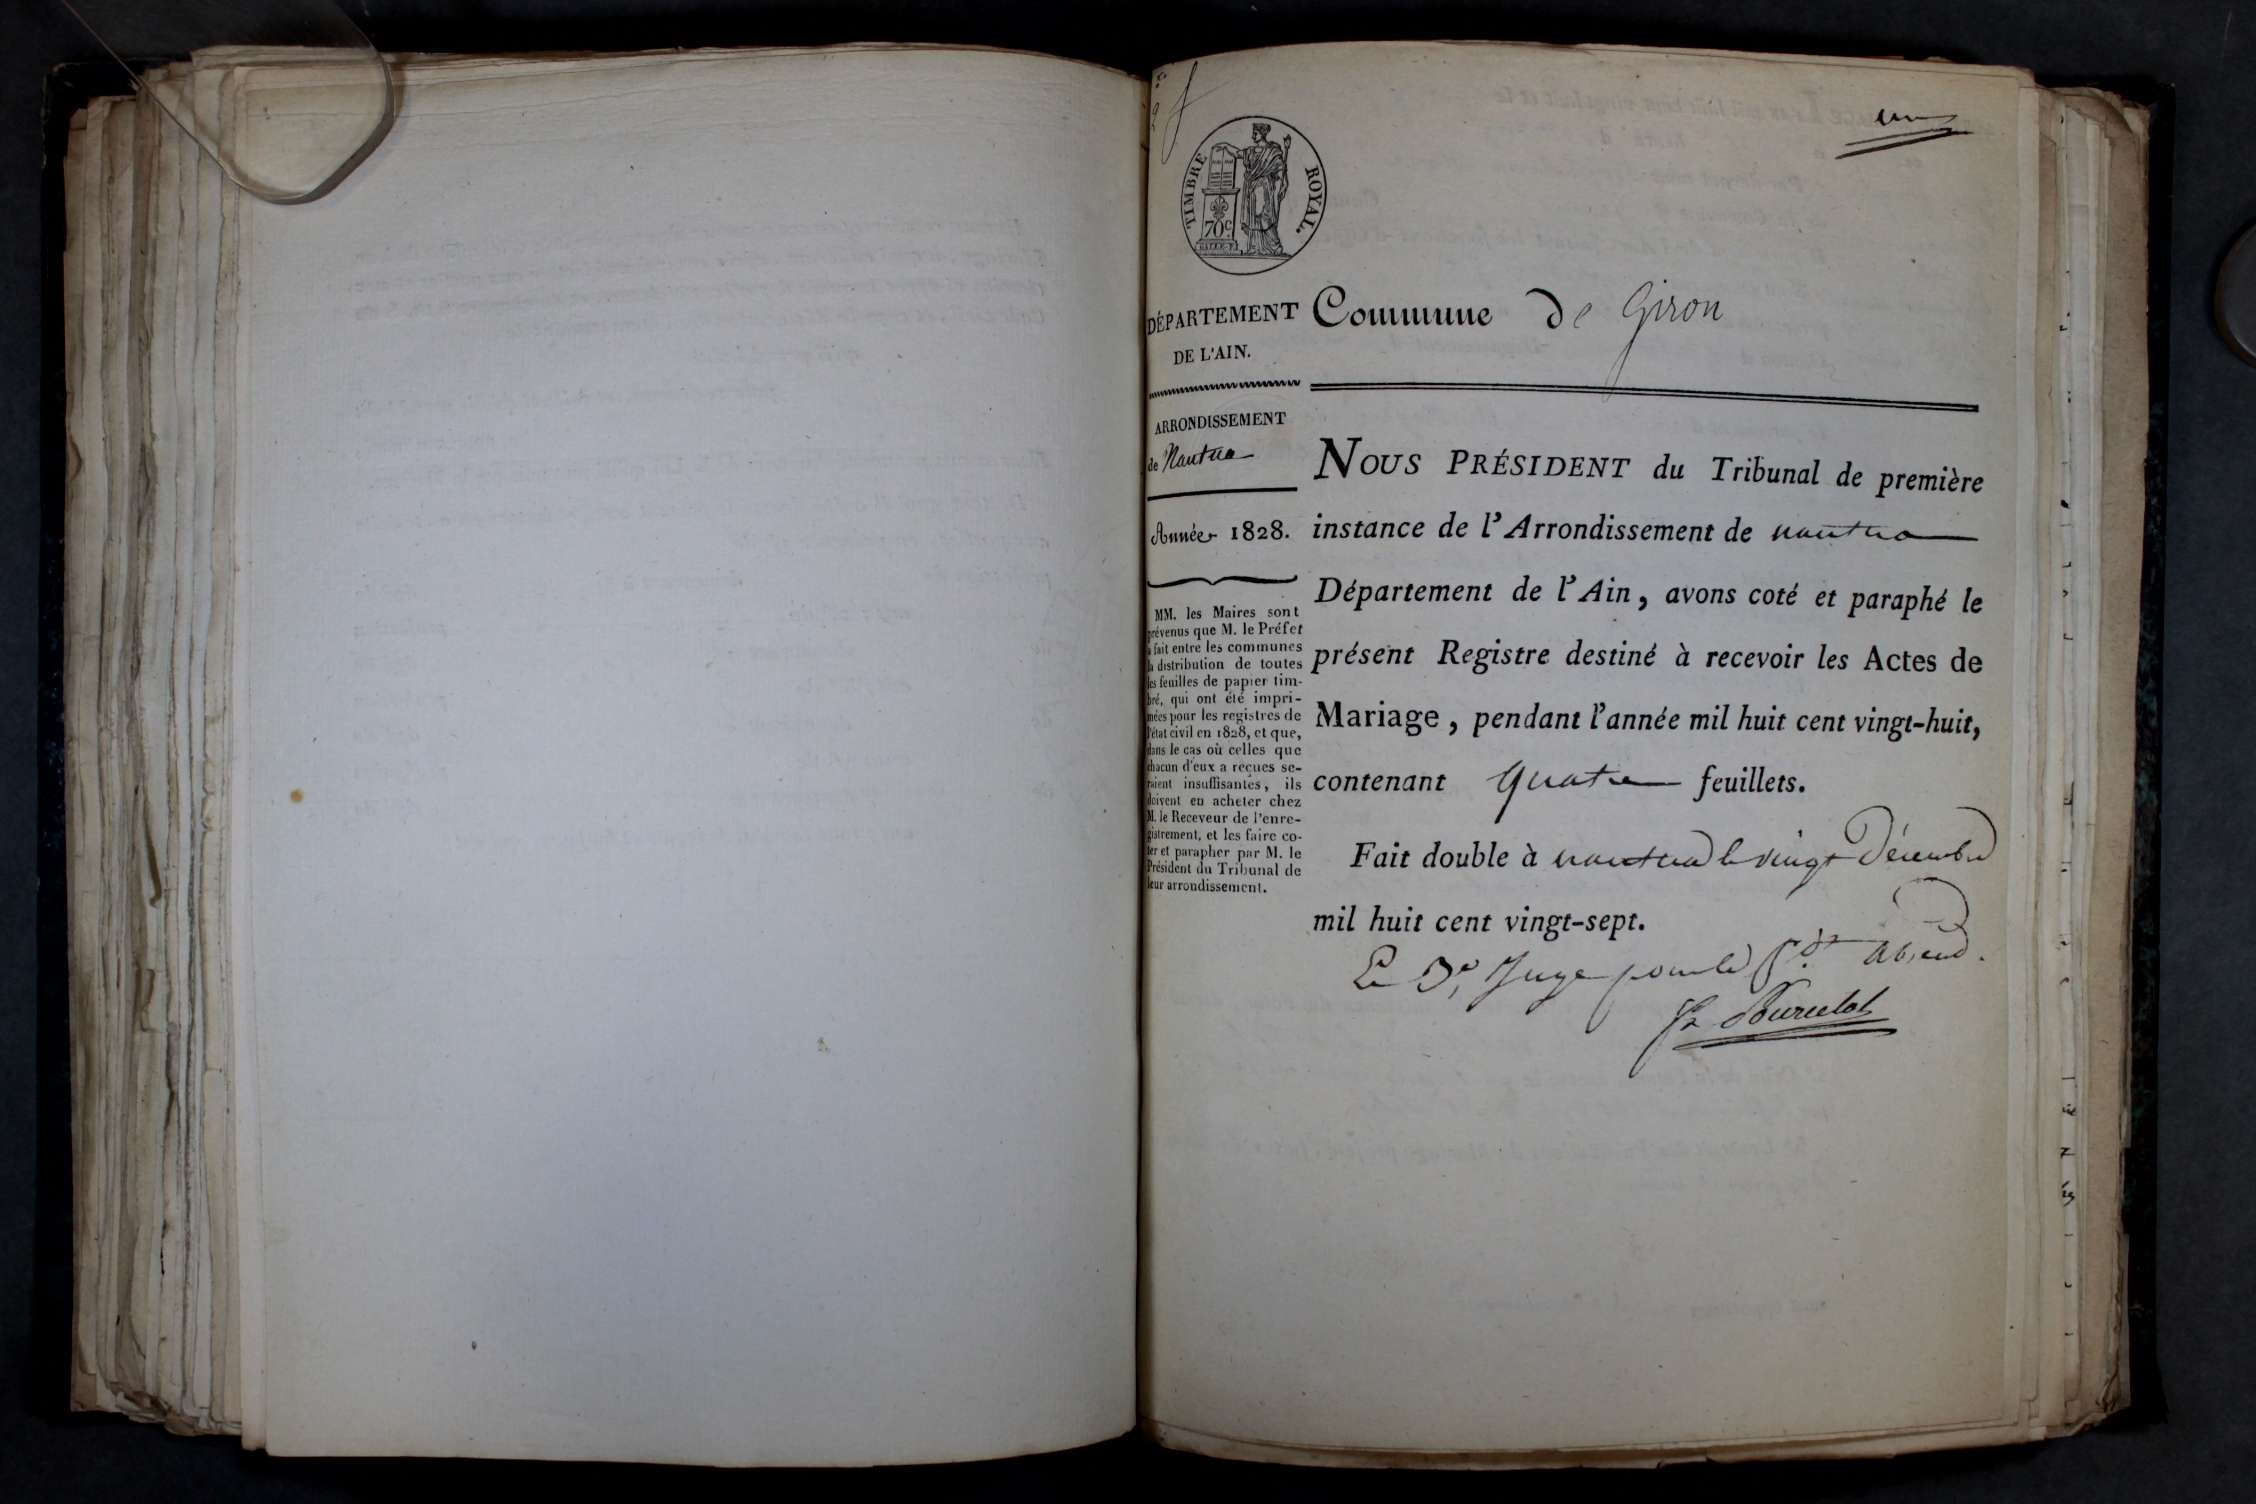 un
TIMBRE ROYAL.
70c.
DÉPARTEMENT
DE L'AIN.
ARRONDISSEMENT
de Nantua
Année 1828.
MM. les Maires sont
prévenus que M. le Préfet
a fait entre les communes
la distribution de toutes
les feuilles de papier tim-
bré, qui ont été impri-
mées pour les registres de
l'état civil en 1828, et que,
dans le cas où celles que
chacun d'eux a reçues se-
raient insuffisantes, ils
doivent en acheter chez
M. le Receveur de l'enre-
gistrement, et les faire co-
ter et parapher par M. le
Président du Tribunal de
leur arrondissement.
Commune de Giron
NOUS PRÉSIDENT du Tribunal de première
instance de l'Arrondissement de nantua
Département de l'Ain, avons coté et paraphé le
présent Registre destiné à recevoir les Actes de
Mariage, pendant l'année mil huit cent vingt-huit,
contenant quatre feuillets.
Fait double à nantua le vingt Décembre
mil huit cent vingt-sept.
Le Juge pour le Pdt